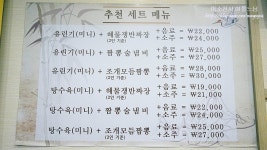 추천 세트 메뉴
유린기(미니) + 해물쟁반짜장 +음료 = ₩22,000
(2인 기준) +소주 = ₩24,000
유린기(미니) + 짬뽕술냄비 +음료 = ₩25,000
+소주 = ₩27,000
유린기(미니) + 조개모듬짬뽕 +음료 = ₩28,000
(2인 기준) +소주 = ₩30,000
탕수육(미니) + 해물쟁반짜장 +음료 = ₩19,000
(2인 기준) +소주 = ₩21,000
탕수육(미니) + 짬뽕술냄비 +음료 = ₩22,000
+소주 = ₩24,000
탕수육(미니) + 조개모듬짬뽕 +음료 = ₩25,000
(2인 기준) +소주 = ₩27,000